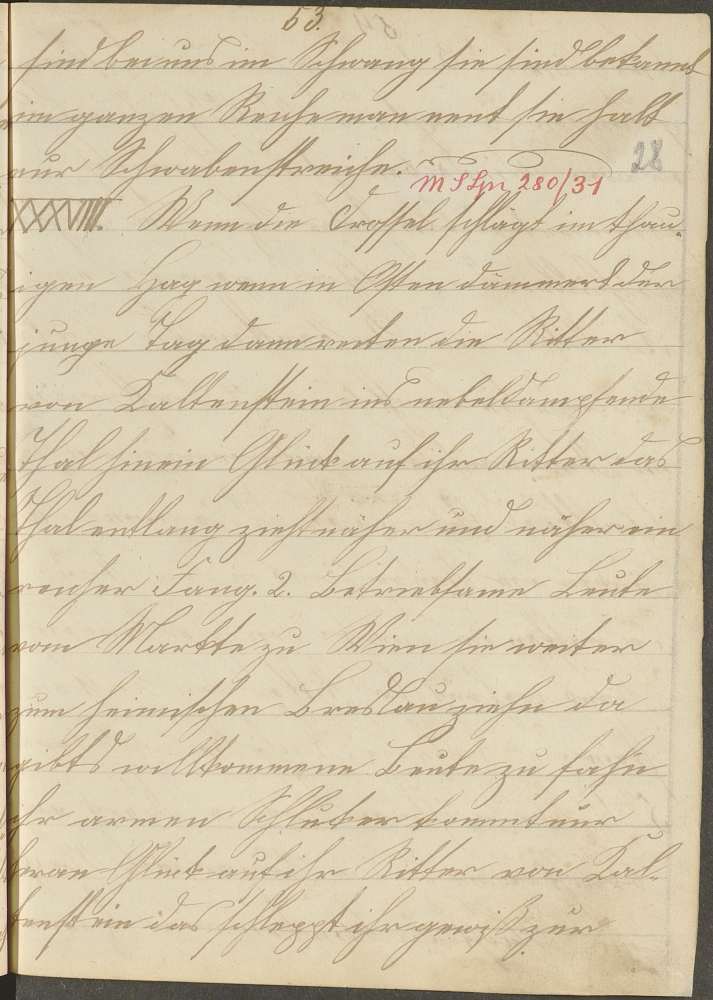 53.
sind bei uns im Schwang sie sind bekannt
im ganzen Reiche man nent sie halt
nur Schwabenstreiche.
28
M S Lpn 280/31
XXXVIIII. Wenn die Drossel schlägt im thau-
igen Hag wenn in Osten dämmert der
junge Tag dann reiten die Ritter
von Kaltenstein ins nebeldampfende
Thal hinein Glück auf ihr Ritter das
Thal entlang zieht näher und näher ein
reicher Fang. 2. Betriebsame Leute
vom Markte zu Wien sie weiter
zum heimischen Breslau ziehn da
gibts willkommene Beute zu fahn
ihr armen Schlucker kommt nur
heran Glück auf ihr Ritter von Kal-
tenstein das schleppt ihr gewiß zur